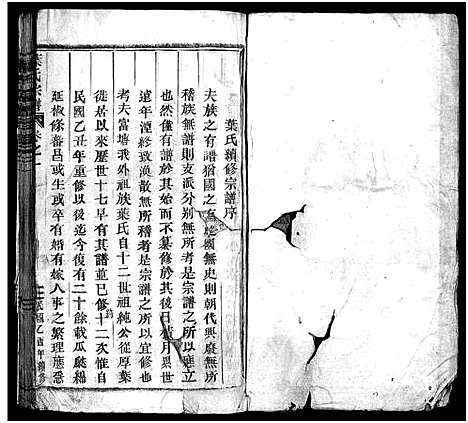 葉氏續修宗譜序
夫族之有譜猶國之有史國無史則朝代興廢無所
稽族無譜則支派分别無所考是宗譜之所以應立
也然僅有譜於其始而不纂修於其後日積月累世
遠年湮終致渙散無所稽者是宗譜之所以宜修也
考夫富塘我外祖族葉氏自十二世祖純公從厚葉
徙居以來歷世十七早有其譜並已修十二次惟自
民國乙丑年重修以後迄今復有二十餘載瓜瓞綿
延椒條蕃昌或生或卒有婚有嫁人事之繁理應悉
葉氏宗譜
民國乙酉年續修